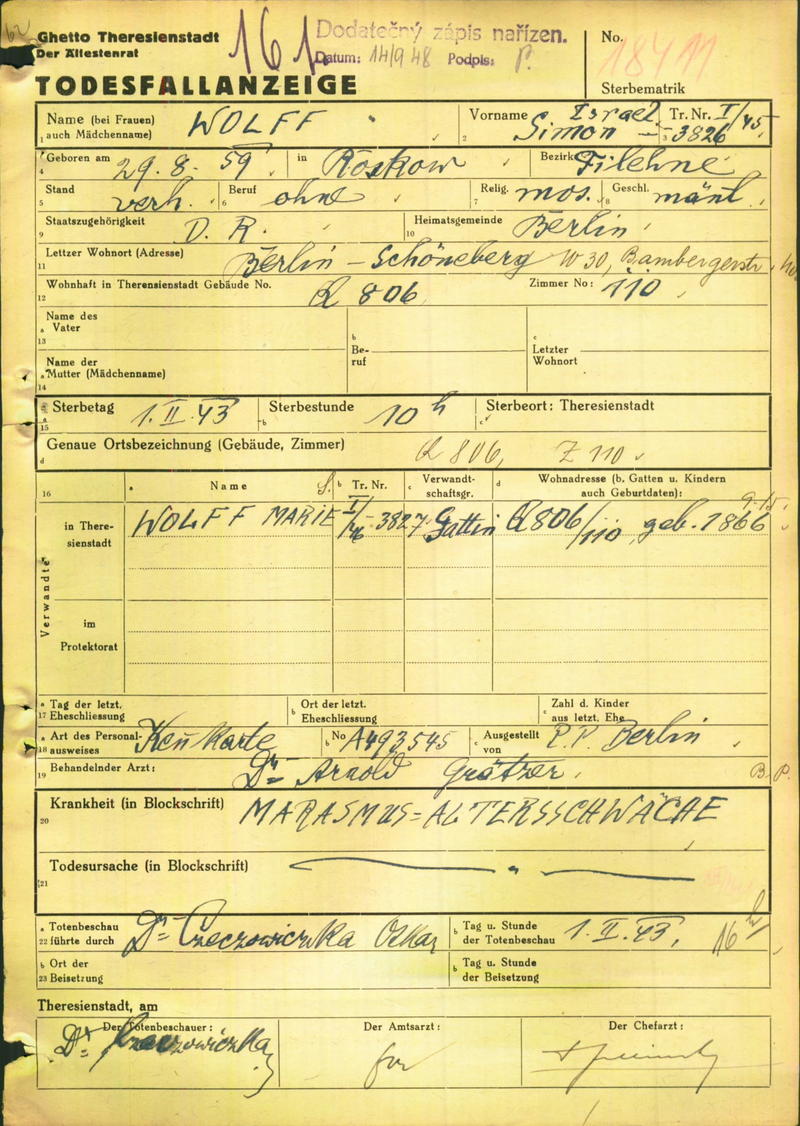 Ghetto Theresienstadt
Der Ältestenrat
161
Dodatečný zápis nařízen.
Datum: 14/9 48 Podpis: P.
No.
18411
Sterbematrik
TODESFALLANZEIGE
Name (bei Frauen) auch Mädchenname) WOLFF
1
Vorname Israel Simon
2
Tr. Nr. I/45 - 3826
3
4 Geboren am 29. 8. 59 in Roskow Bezirk Filehne
5 Stand verh. 6 Beruf ohne 7 Relig. mos. 8 Geschl. mänl.
9 Staatszugehörigkeit D. R. 10 Heimatsgemeinde Berlin
11 Lettzer Wohnort (Adresse) Berlin - Schöneberg W 30, Bambergerstr.
12 Wohnhaft in Theresienstadt Gebäude No. Q 806 Zimmer No: 110
Name des
a Vater
13
b Be-
ruf
c Letzter
Wohnort
Name der
a Mutter (Mädchenname)
14
a Sterbetag 1. II. 43 b Sterbestunde 10 h c Sterbeort: Theresienstadt
15
Genaue Ortsbezeichnung (Gebäude, Zimmer) Q 806, Z 110
d
16 a Name b Tr. Nr. c Verwandt-
schaftsgr. d Wohnadresse (b. Gatten u. Kindern
auch Geburtdaten):
Verwandte
in There-
sienstadt
WOLFF MARIE S. I/46 - 3827 Gattin Q806/110, geb. 1866
im
Protektorat
a Tag der letzt.
17 Eheschliessung
b Ort der letzt.
Eheschliessung
c Zahl d. Kinder
aus letzt. Ehe
a Art des Personal-
18 ausweises Kennkarte b No A493545 c Ausgestellt
von P. P. Berlin
19 Behandelnder Arzt: Dr Arnold Grätzer B. P.
Krankheit (in Blockschrift) MARASMUS = ALTERSSCHWÄCHE
20
Todesursache (in Blockschrift)
21
a Totenbeschau
22 führte durch Dr Czeczowiczka Oskar b Tag u. Stunde
der Totenbeschau 1. II. 43. 16 h
b Ort der
23 Beisetzung
b Tag u. Stunde
der Beisetzung
Theresienstadt, am
Der Totenbeschauer: Der Amtsarzt: Der Chefarzt:
Dr Czeczowiczka